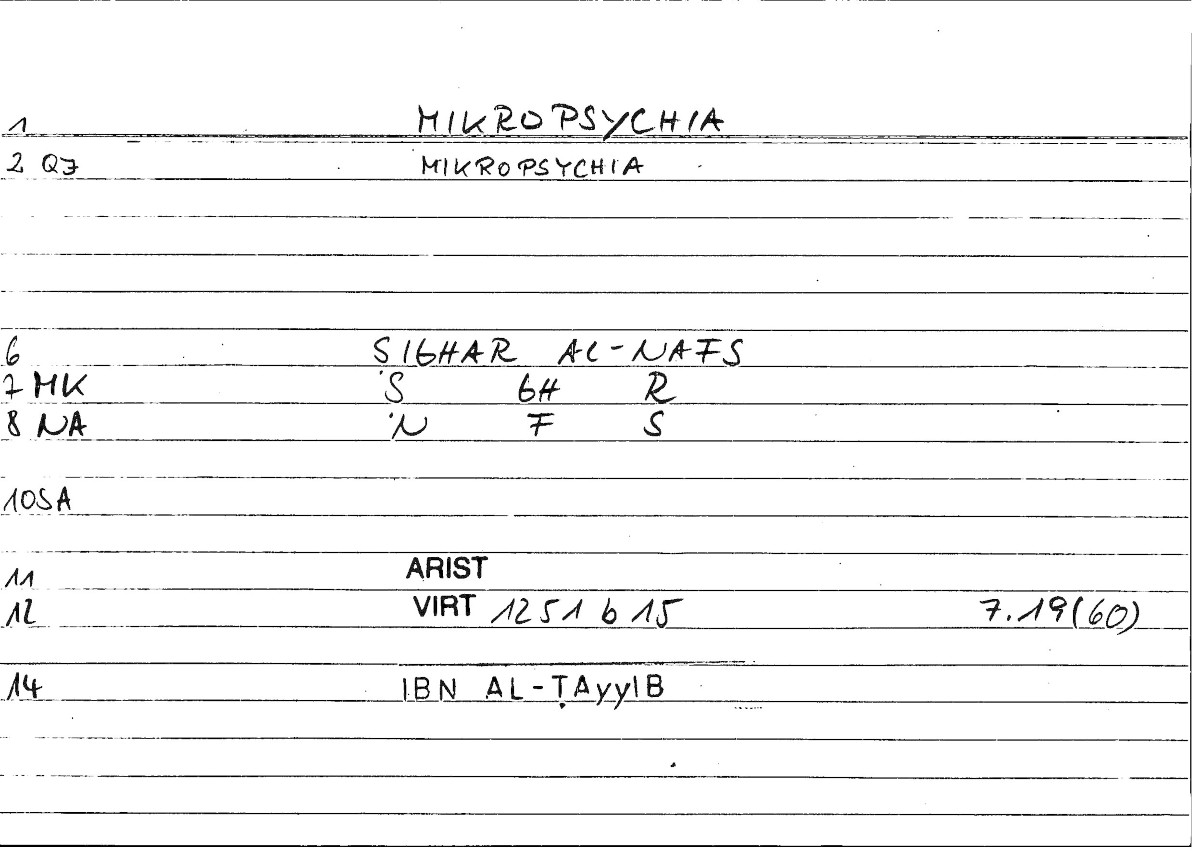 1 MIKROPSYCHIA
2 QJ MIKROPSYCHIA
6 SIGHAR AL-NAFS
7 MK Ṣ GH R
8 NA N F S
10 SA
11 ARIST
12 VIRT 1251 b 15 7.19(60)
14 IBN AL-ṬAyyIB